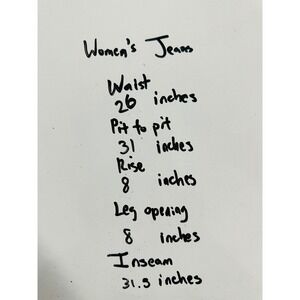 Women's Jeans
Waist
26 inches
Pit to pit
31 inches
Rise
8 inches
Leg opening
8 inches
Inseam
31.5 inches